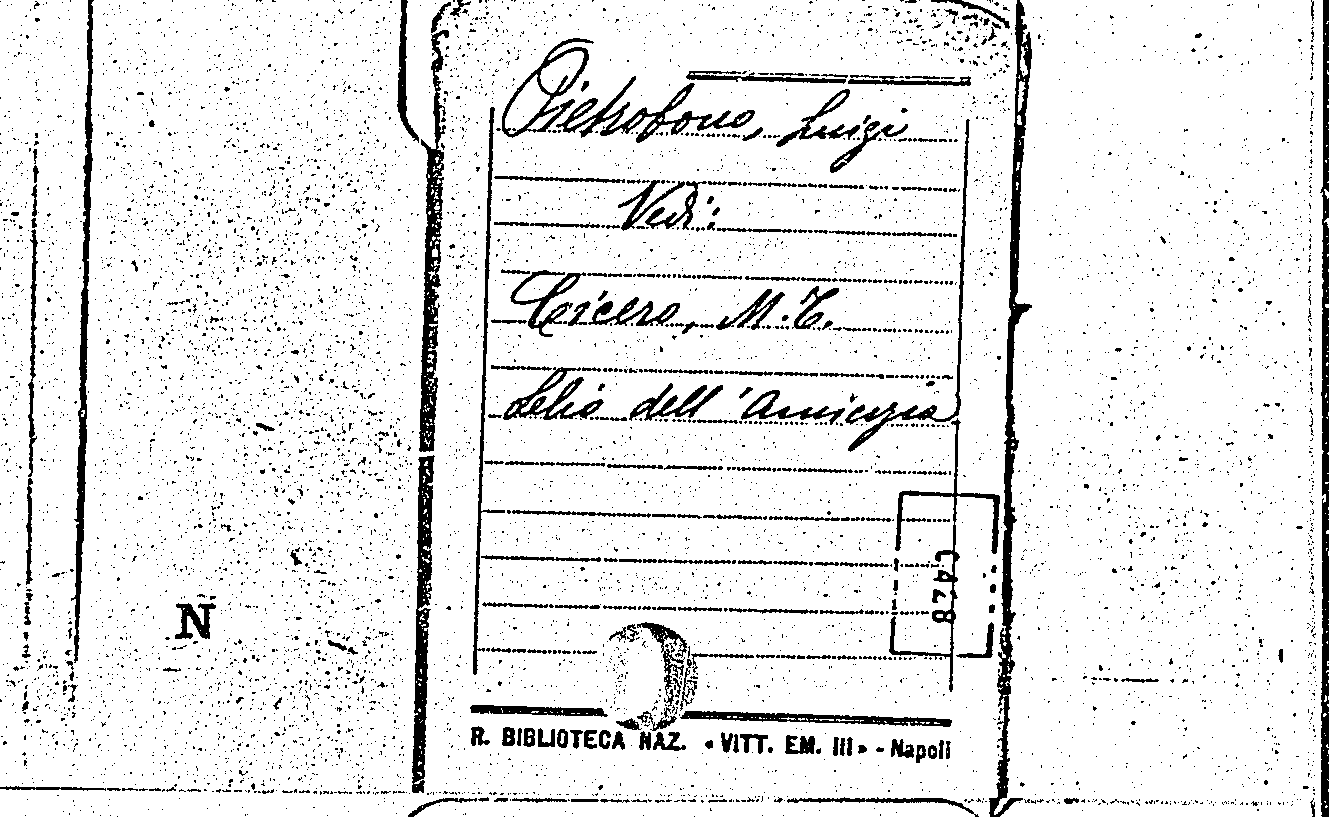 Pietrobono, Luigi
Vedi:
Cicero, M.T.
Lelio dell'Amicizia
C428
N
R. BIBLIOTECA NAZ. «VITT. EM. III» - Napoli